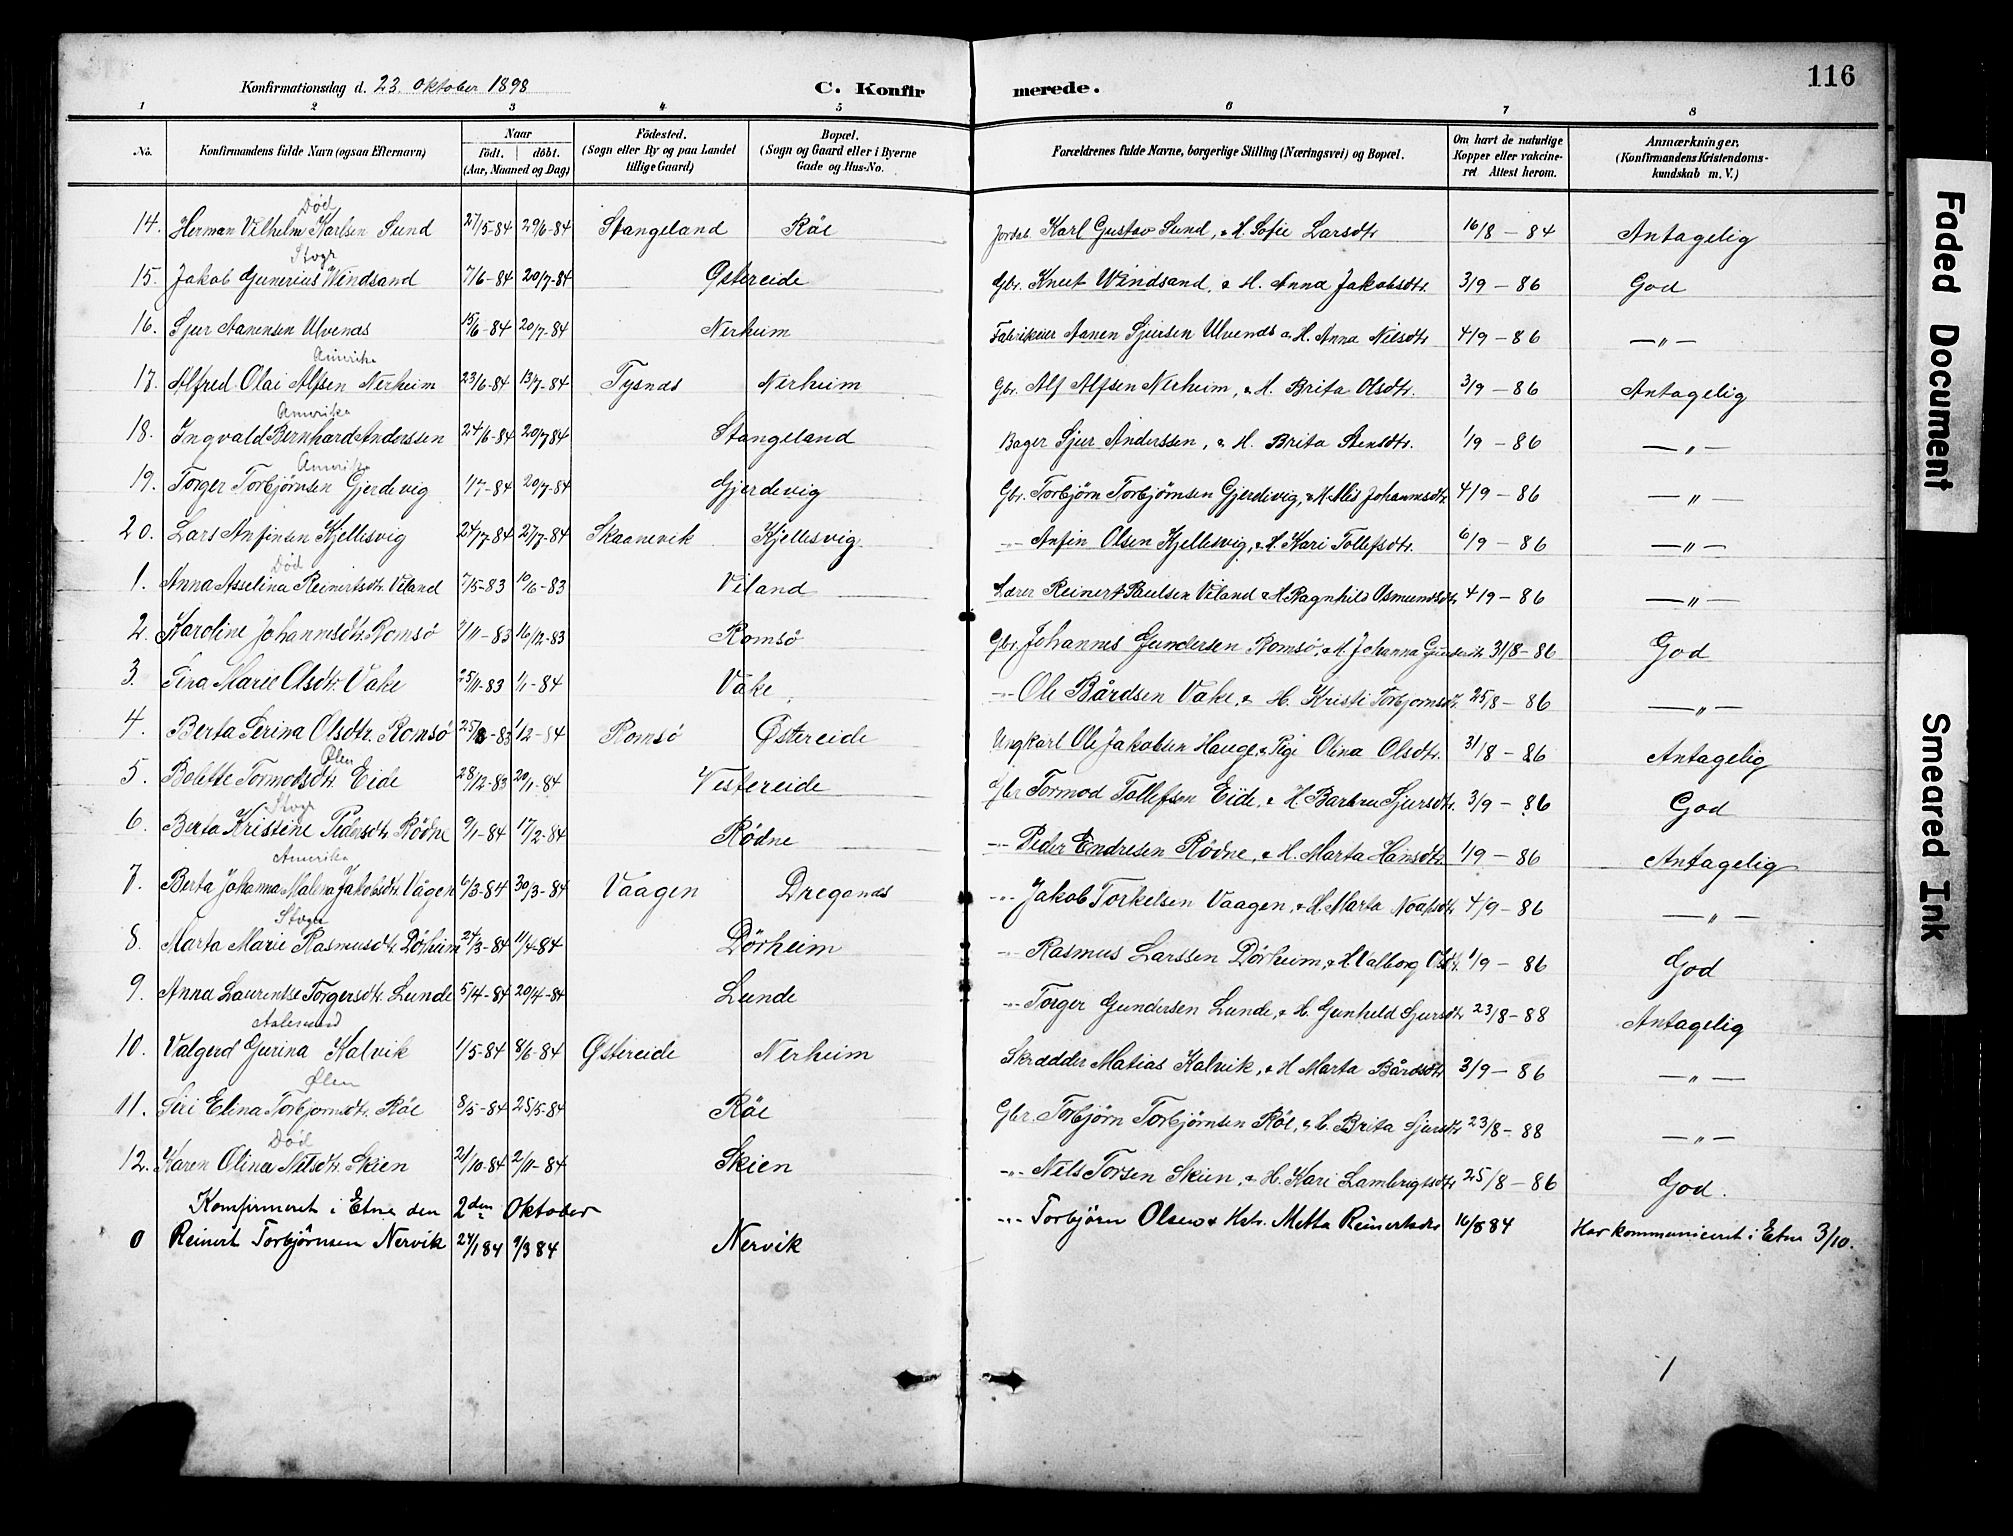 Konfirmationsdag d. 23. Oktober 1898 C. Konfir merede. 116
1 2 3 4 5 6 7 8
No. Konfirmandens fulde Navn (ogsaa Efternavn) Naar Födt. döbt. (Aar, Maaned og Dag) Födested. (Sogn eller By og paa Landet tillige Gaard) Bopæl. (Sogn og Gaard eller i Byerne Gade og Hus-No. Forældrenes fulde Navne, borgerlige Stilling (Næringsvei) og Bopæl. Om havt de naturlige Kopper eller vakcineret Attest herom. Anmærkninger. (Konfirmandens Kristendomskundskab m. V.)
Död
14. Herman Vilhelm Karlsen Sund 27/5-84 29/6-84 Stangeland Röe Jordab. Karl Gustav Sund, & H. Sofie Larsdtr 16/8 - 84 Antagelig
Stvgr
15. Jakob Gunerius Windsand 7/6-84 20/7-84 Østereide Gbr. Knut Windsand, & H. Anna Jakobsdtr. 3/9 - 86 God
16. Sjur Aanensen Ulvenes 15/6-84 20/7-84 Nerheim Fabrikeier Aanen Sjursen Ulvenes & H. Anna Nilsdtr 4/9 - 86 — " —
Amerika
17. Alfred Olai Alfsen Nerheim 23/6-84 13/7-84 Tysnes Nerheim Gbr. Alf Alfsen Nerheim, & H. Brita Olsdtr. 3/9 - 86 Antagelig
Amerika
18. Ingvald Bernhard Anderssen 24/6-84 20/7 84 Stangeland Bager Sjur Anderssen, & H. Brita Stensdtr. 1/9 - 86 — " —
Amerika
19. Torger Torbjørnsen Gjerdevig 1/7-84 20/7-84 Gjerdevig Gbr. Torbjørn Torbjørnsen Gjerdevig, & H. Johannesdtr 4/9 - 86 — " —
20. Lars Anfinsen Kjellesvig 24/7-84 27/7-84 Skaanevik Kjellesvig -"- Anfin Olsen Kjellesvig, & H. Kari Tollefsdtr. 6/9 - 86 — " —
Död
1. Anna Asseline Reinertsdtr. Viland 7/5-83 10/6-83 Viland Lærer Reinert Paulsen Viland & H. Ragnhild Osmundsdtr 4/9 - 86 — " —
2. Karoline Johannesdtr. Romsö 7/11-83 16/12-83 Romsö Gbr. Johannes Gundersen Romsö, & H. Johanna 31/8 - 86 God
3. Sina Marie Olsdtr. Vake 25/11-83 1/1-84 Vake -"- Ole Bårdsen Vake, & H. Kristi Torbjornsdtr. 25/8 - 86 — " —
4. Berta Serina Olsdtr. Romsö 1/2-84 Romsö Østereide Ungkarl Ole Jakobsen Hauge, & Pige Olina Olsdtr. 31/8 - 86 Antagelig
Ølen
5. Bolette Tormodsdtr. Eide 28/12-83 20/1-84 Vestereide Gbr Tormod Tollefsen Eide, & H. Barbru Sjursdtr. 3/9 - 86 God
Stvgr
6. Berta Kristine Pedersdtr. Rödne 9/1-84 17/2-84 Rödne -"- Peder Endresen Rödne, & H. Marta Hansdtr 1/9 - 86 Antagelig
Amerika
7. Berta Johanna Malena Jakobsdtr. Vågen 6/3-84 30/3-84 Vaagen Dreganes -"- Jakob Torkelsen Vaagen, & H. Marta 4/9 - 86 — " —
Stvgr
8. Marta Marie Rasmusdtr. Dörheim 24/3-84 11/4-84 Dörheim -"- Rasmus Larssen Dörheim, & H. Valborg 1/9 - 86 God
9. Anna Laurentse Torgersdtr. Lunde 5/4-84 20/4-84 Lunde -"- Torger Gundersen Lunde, & H. Gunheld Sjursdtr 23/8 - 88 Antagelig
Aalesund
10. Valgerd Gurina Kalvik 1/5-84 8/6-84 Østereide Nerheim Skrædder Matias Kalvik, & H Marta Bårdsdtr 3/9 - 86 — " —
Ølen
11. Siri Elina Torbjornsdtr. Röe 8/5-84 25/5-84 Röe Gbr. Torbjørn Torbjørnsen Röe, & H. Brita Sjursdtr 23/8 - 88 — " —
Död
12. Karen Olina Nelsdtr. Skien 21/10-84 2/11-84 Skien -"- Nels Torsen Skien, & H. Kari Lambrigtsdtr 25/8 - 86 God.
Konfirmeret i Etne den 2den Oktober
0 Reinert Torbjörnsen Nervik 24/1 84 9/3 84 Nervik -"- Torbjörn Olsen & Hstr. Metta Reinertsdtr 16/8 84 Har kommuniceret i Etne 3/10.
Faded Document
Smeared Ink